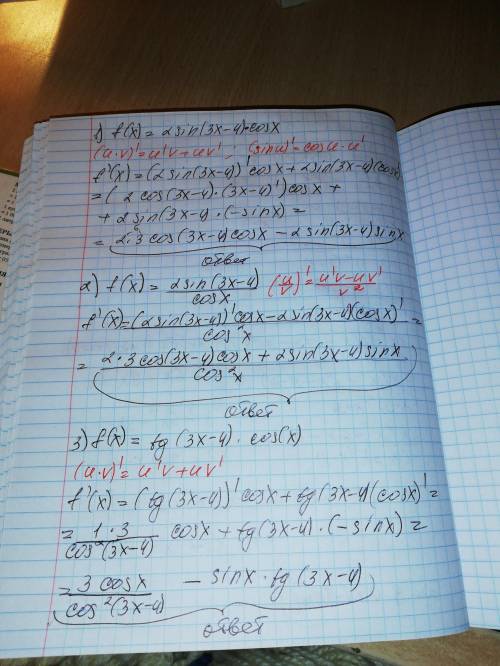 1) f(x) = 2sin(3x-4)·cosx
(u·v)' = u'v + uv' ; (sin u)' = cos u · u'
f'(x) = (2sin(3x-4))'cosx + 2sin(3x-4)(cosx)'
= (2cos(3x-4)·(3x-4)')cosx +
+ 2sin(3x-4)·(-sinx) =
= 2·3cos(3x-4)cosx - 2sin(3x-4)sinx
ответ
2) f(x) = 2sin(3x-4)/cosx (u/v)' = (u'v - uv')/v²
f'(x) = ((2sin(3x-4))'cosx - 2sin(3x-4)(cosx)')/cos²x =
= (2·3cos(3x-4)cosx + 2sin(3x-4)sinx)/cos²x
ответ
3) f(x) = tg(3x-4)·cos(x)
(u·v)' = u'v + uv'
f'(x) = (tg(3x-4))'cosx + tg(3x-4)(cosx)' =
= 1·3/cos²(3x-4) cosx + tg(3x-4)·(-sinx) =
= 3cosx/cos²(3x-4) - sinx·tg(3x-4)
ответ